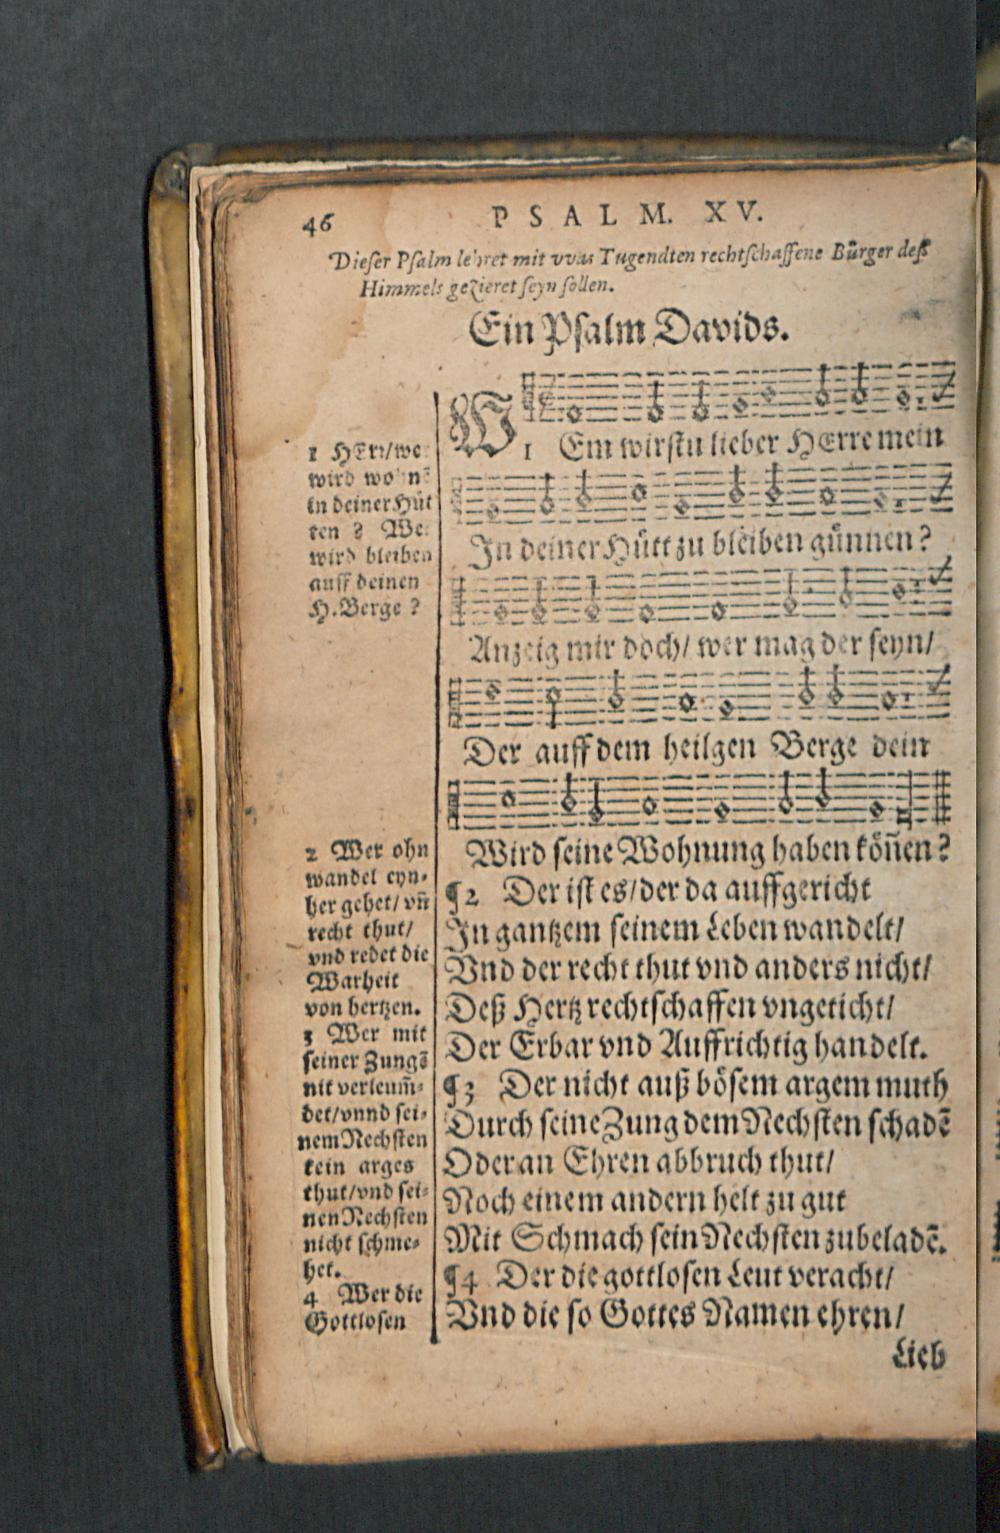 46
PSALM. XV.
Dieser Psalm lehret mit vvas Tugendten rechtschaffene Bůrger deß
Himmels gezieret seyn sollen.
Ein Psalm Davids.
W
1 Em wirstu lieber HErre mein
In deiner Hůtt zu bleiben gůnnen?
Anzeig mir doch/ wer mag der seyn/
Der auff dem heilgen Berge dein
Wird seine Wohnung haben kőñen?
¶2 Der ist es/ der da auffgericht
In gantzem seinem Leben wandelt/
Vnd der recht thut vnd anders nicht/
Deß Hertz rechtschaffen vngeticht/
Der Erbar vnd Auffrichtig handelt.
¶3 Der nicht auß bősem argem muth
Durch seine Zung dem Nechsten schadẽ
Oder an Ehren abbruch thut/
Noch einem andern helt zu gut
Mit Schmach sein Nechsten zubeladẽ.
¶4 Der die gottlosen Leut veracht/
Vnd die so Gottes Namen ehren/
Lieb
1 HErr/ wer
wird wohnẽ
in deiner Hůt
ten? Wer
wird bleiben
auff deinen
H. Berge?
2 Wer ohn
wandel eyn-
her gehet/ vñ
recht thut/
vnd redet die
Warheit
von hertzen.
3 Wer mit
seiner Zungẽ
nit verleum̃-
det/ vnnd sei-
nem Nechsten
kein arges
thut/ vnd sei-
nen Nechsten
nicht schme-
het.
4 Wer die
Gottlosen